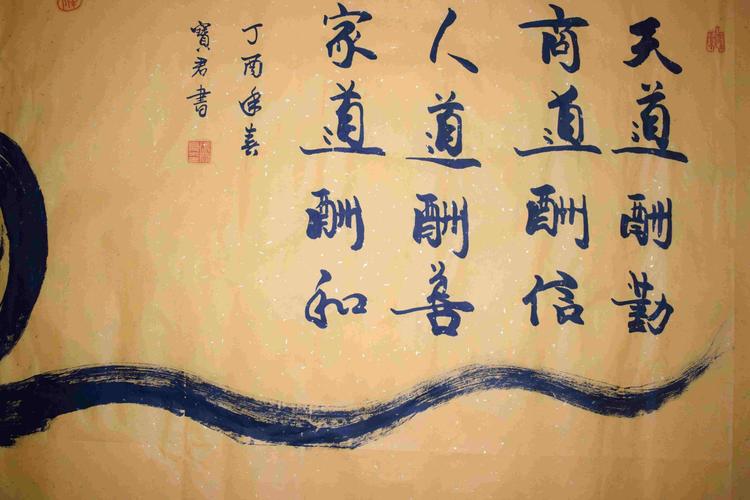 天道酬勤
商道酬信
人道酬善
家道酬和
丁酉年春
寶君書